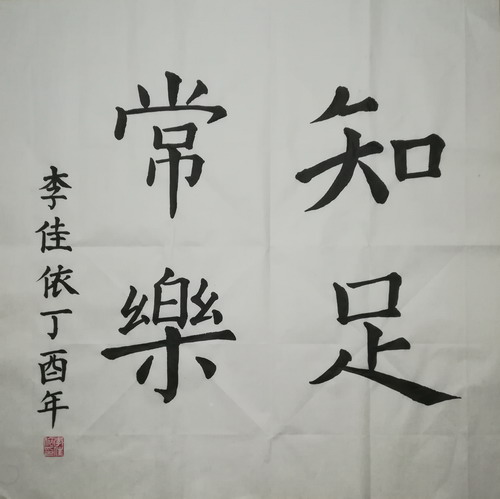 知足
常樂
李佳依丁酉年